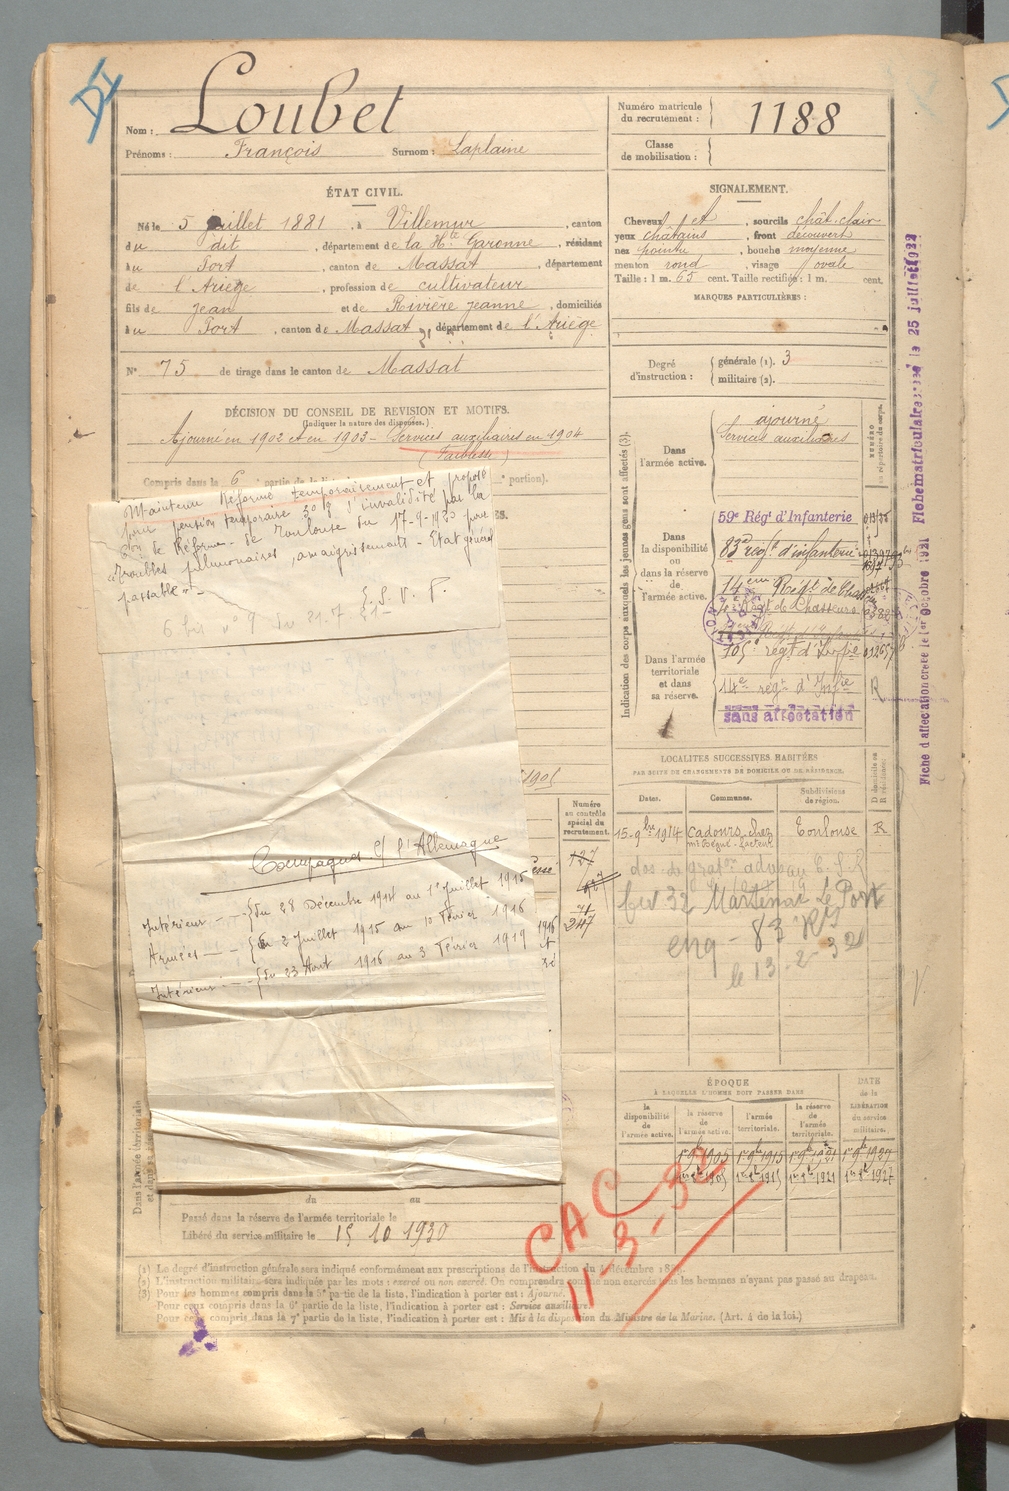 Nom : Loubet
Prénoms : François Surnom : Laplaine
Numéro matricule du recrutement : 1188
Classe de mobilisation :
ÉTAT CIVIL.
Né le 5 juillet 1881, à Villemur, canton
du dit, département de la Hte Garonne, résidant
au Port, canton de Massat, département
de l'Ariège, profession de cultivateur
fils de Jean et de Rivière Jeanne, domiciliés
au Port, canton de Massat, département de l'Ariège
N° 75 de tirage dans le canton de Massat
SIGNALEMENT.
Cheveux et, sourcils chât. clair
yeux châtains, front découvert
nez pointu, bouche moyenne
menton rond, visage ovale
Taille : 1 m. 65 cent. Taille rectifiée : 1 m. cent.
MARQUES PARTICULIÈRES :
Degré d'instruction : générale (1). 3
militaire (2).
DÉCISION DU CONSEIL DE REVISION ET MOTIFS.
(Indiquer la nature des dispenses.)
Ajourné en 1902 et en 1903 - Services auxiliaires en 1904
(Faiblesse)
Compris dans la 6e partie de la portion).
Maintenu Réformé temporairement et proposé
pour pension temporaire 30 % d'invalidité par la
de Réforme de Toulouse du 17-9-1920 pour
"Troubles pulmonaires, amaigrissements - État général
passable" -
6 bis n° 9 du 21.7 21
Campagnes c/ l'Allemagne
Intérieur - {du 28 Décembre 1914 au 1er Juillet 1915
Armées - {du 2 Juillet 1915 au 10 Février 1916
Intérieur - {du 23 Août 1916 au 3 Février 1919
Indication des corps auxquels les jeunes gens sont affectés (3).
Dans l'armée active.
ajourné
Services auxiliaires
Dans la disponibilité ou dans la réserve de l'armée active.
59e Régt d'Infanterie
83e régt d'infanterie
14eme Régt de Chass
Régt de Chasseurs
Dans l'armée territoriale et dans sa réserve.
105e régt d'Infie
14e régt d'Infie R
sans affectation
LOCALITÉS SUCCESSIVES HABITÉES
PAR SUITE DE CHANGEMENTS DE DOMICILE OU DE RÉSIDENCE.
Dates. Communes. Subdivisions de région. D domicile ou R résidence.
15-9bre 1914 Cadours, chez Toulouse R
fev 32 Le Port
83 RI
le 13-2-32
Numéro au contrôle spécial du recrutement.
247
ÉPOQUE
À LAQUELLE L'HOMME DOIT PASSER DANS
la disponibilité de l'armée active.
la réserve de l'armée active.
l'armée territoriale.
la réserve de l'armée territoriale.
DATE de la LIBÉRATION du service militaire.
1er 9bre 1905 1er 9bre 1915
Dans l'armée territoriale et dans sa
du au
Passé dans la réserve de l'armée territoriale le
Libéré du service militaire le 15 10 1930
CAC
11-3-32
(1) Le degré d'instruction générale sera indiqué conformément aux prescriptions de l'instruction du 4 décembre
(2) L'instruction militaire sera indiquée par les mots : exercé ou non exercé. On comprendra comme non exercés tous les hommes n'ayant pas passé au drapeau.
(3) Pour les hommes compris dans la 5e partie de la liste, l'indication à porter est : Ajourné.
Pour ceux compris dans la 6e partie de la liste, l'indication à porter est : Services auxiliaires.
Pour ceux compris dans la 7e partie de la liste, l'indication à porter est : Mis à la disposition du Ministre de la Marine. (Art. 4 de la loi.)
Fiche d'affectation créée le 1er Octobre 1921 Fiche matriculaire le 25 juillet 1922